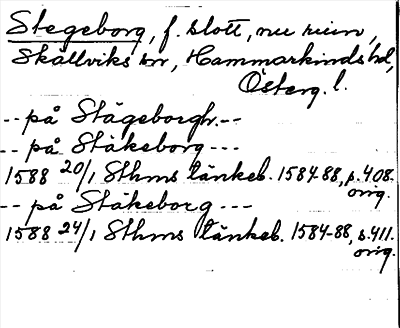 Stegeborg, f. slott, nu ruin,
Skällviks sn, Hammarkinds hd,
Österg. l.
-- på Stägeborgh.--
-- på Stäkeborg ---
1588 20/1 Sthms tänkeb. 1584-88, s. 408.
orig.
-- på Stäkeborg ---
1588 24/1 Sthms tänkeb. 1584-88, s. 411.
orig.